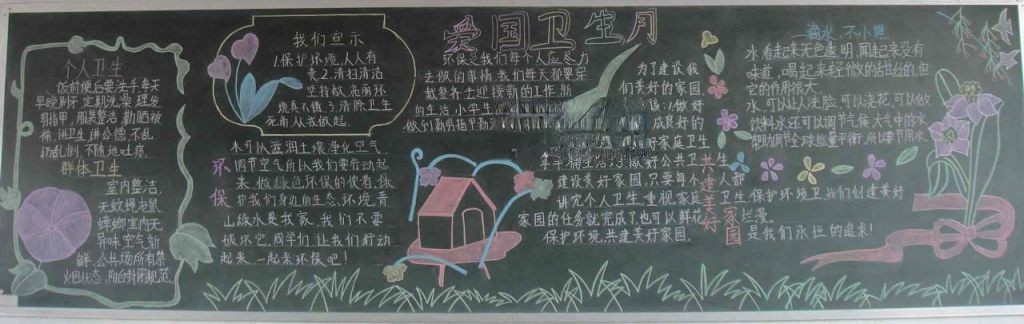 爱国卫生月
个人卫生
饭前便后要洗手每天
早晚刷牙定期洗澡理发
剪指甲,服装整洁勤晒被
褥,讲卫生讲公德,不乱
扔乱倒不随地吐痰
群体卫生
室内整洁,
无蚊蝇老鼠,
蟑螂室内无
异味空气新
鲜,公共场所有禁
火(烟)状态,阳台封闭规范。
我们宣示
1.保护环境,人人有
责2.清扫清洁
坚持做,亮丽环
境真不错3.清除卫生
死角,从我做起。
环保
水可以滋润土壤净化空气
调节空气所以我们要行动起
来,做绿色环保的使者,保
护我们身边的生态环境,青
山绿水是我家,我们不要
破坏它,同学们,让我们行动
起来,一起来环保吧!
环保是我们每个人应尽力
去做的事情,我们每天都要穿
戴整齐,迎接新的工作,新
的生活,小学生
做到剪剪指甲勤
为了建设我
们美好的家园
该:1.做好
成良好的
好家庭卫生
好公共卫生
建设美好家园,只要每个人都
讲究个人卫生,重视家庭卫生保护环境卫我们创建美好
家园的任务就完成了也可以鲜花烂漫。
保护环境,共建美好家园,
是我们永恒的追求!
共建美好家园
一滴水,不小瞧
水看起来无色透明,闻起来没有
味道,喝起来轻微的甜丝丝的,但
它的作用很大
水可以让人洗脸,可以浇花,可以做
饮料水还可以调节气候,大气中的水
帮助调节全球能量平衡,所以要节用水